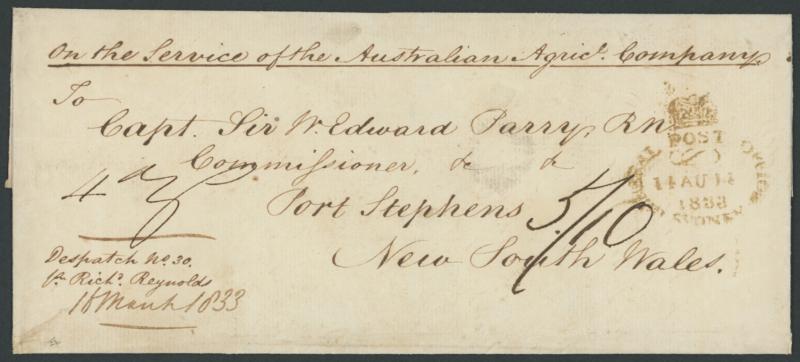 On the Service of the Australian Agricl. Company.
To
Capt. Sir W. Edward Parry, RN.
Commissioner, & &
Port Stephens
New South Wales.
5/10
Despatch No. 30.
pr. Richd. Reynolds
16 March 1833
GENERAL POST OFFICE
14 AU 14
1833
SYDNEY